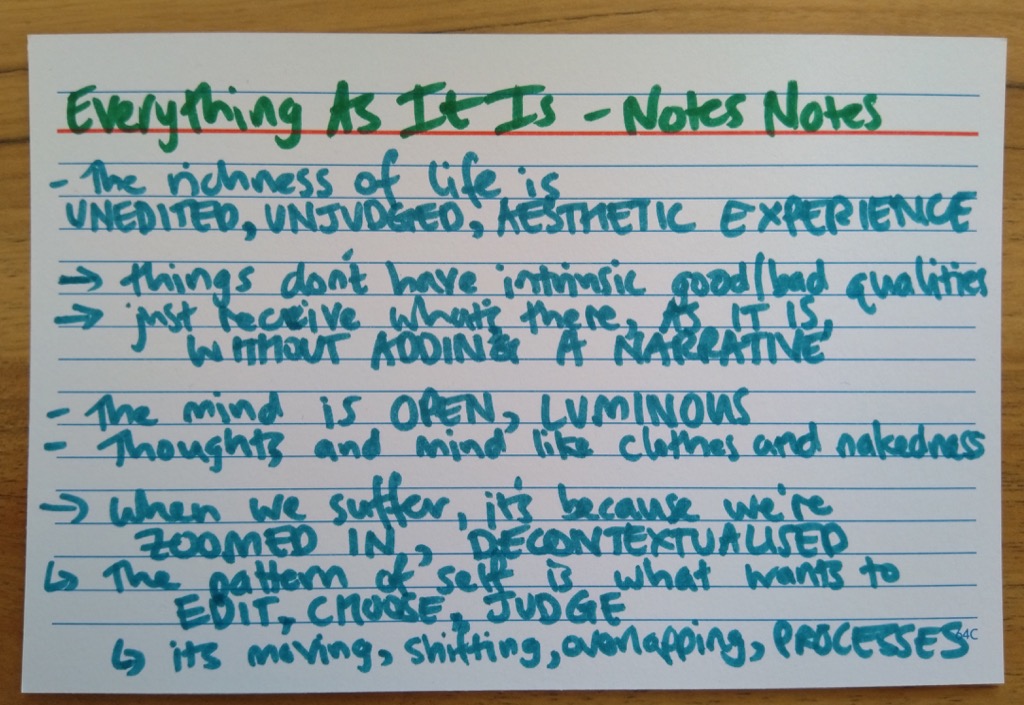 Everything As It Is - Notes Notes
- The richness of life is
UNEDITED, UNJUDGED, AESTHETIC EXPERIENCE
→ things don't have intrinsic good/bad qualities
→ just receive what's there, AS IT IS,
WITHOUT ADDING A NARRATIVE
- The mind is OPEN, LUMINOUS
- Thoughts and mind like clothes and nakedness
→ when we suffer, it's because we're
ZOOMED IN, DECONTEXTUALISED
↳ The pattern of self is what wants to
EDIT, CHOOSE, JUDGE
↳ its moving, shifting, overlapping, PROCESSES
64C